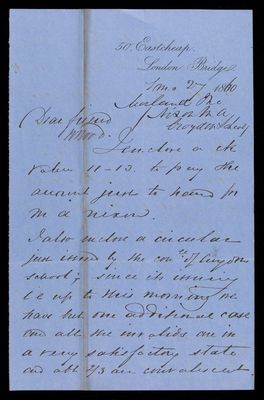 50, Eastcheap.
London Bridge
27 1860
Nixon M A
Croydon School
Dear friend
I enclose a ck
value 11-13. to pay the
account just to hand for
M A Nixon.
I also enclose a circular
just issued by the
school; since its issuing
up to this morning we
have but one additional case
and all the invalids are in
a very satisfactory state
and abt 2/3 are convalescent.